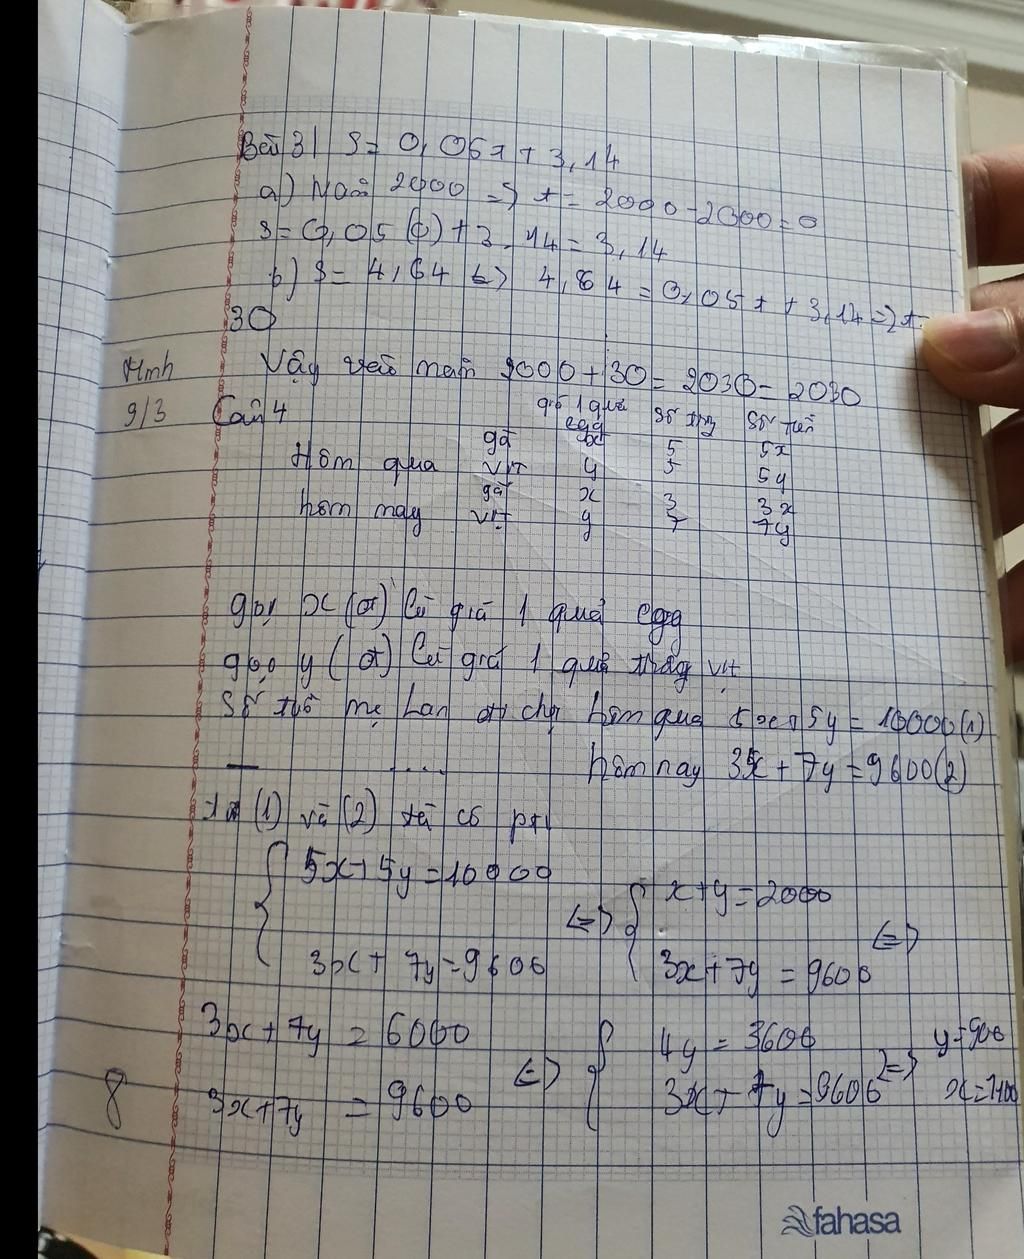 Bài 3| S = 0,05t + 3,14
a) Năm 2000 => t = 2000 - 2000 = 0
S = 0,05 (0) + 3,14 = 3,14
b) S = 4,64 <=> 4,64 = 0,05t + 3,14 => t =
30
Vậy năm 2000 + 30 = 2030 = 2030
9/3 Câu 4
giá 1 quả số số tiền
egg
gà x 5 5x
Hôm qua vịt y 5 5y
gà x 3 3x
hôm nay vịt y 7 7y
gọi x (đ) là giá 1 quả egg
gọi y (đ) là giá 1 quả trứng vịt
Số tiền mẹ Lan đi chợ hôm qua 5x + 5y = 10000 (1)
— .... hôm nay 3x + 7y = 9600 (2)
từ (1) và (2) ta có pt
5x + 5y = 10000
<=> x + y = 2000 <=>
3x + 7y = 9600
3x + 7y = 9600
3x + 7y = 6000
<=> 4y = 3600 => y = 900
8 3x + 7y = 9600
3x + 7y = 9600 x = 1100
fahasa